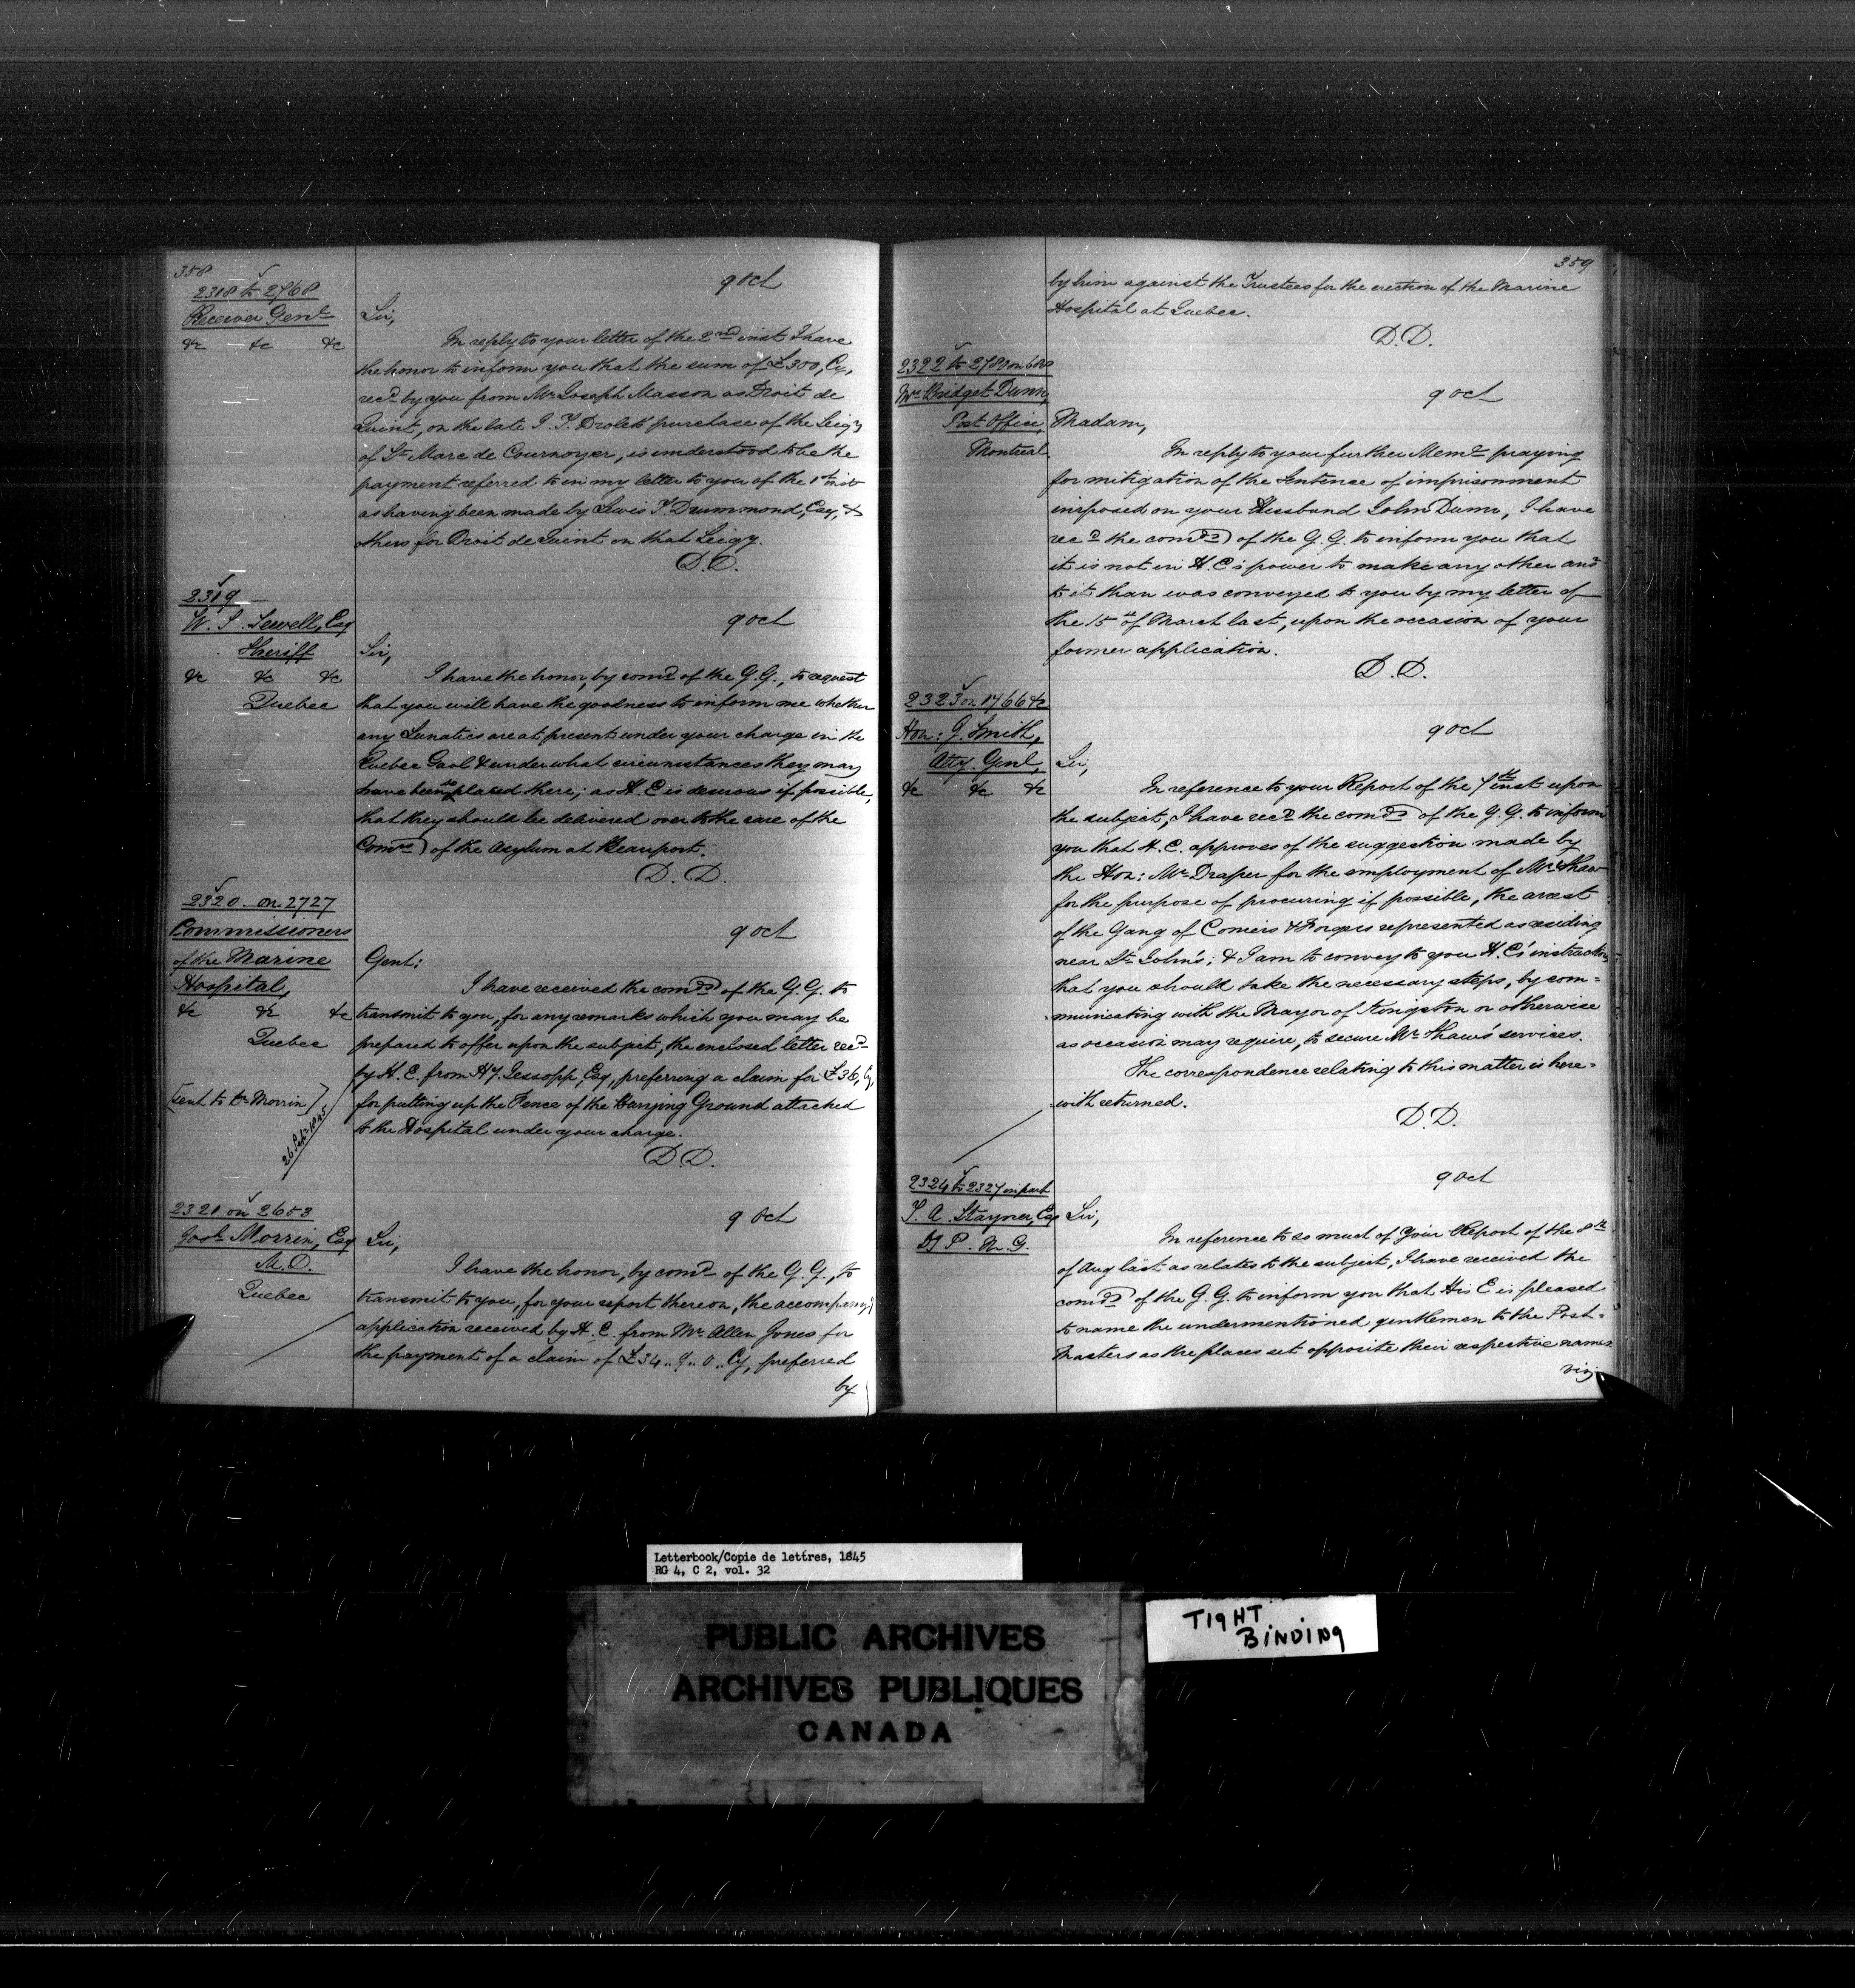 358
9 Oct
2318 to 2768
Receiver Genl
&c &c &c
Sir,
In reply to your letter of the 2nd inst I have
the honor to inform you that the sum of £300, Cy,
recd by you from Mr Joseph Masson as Droit de
Quint, on the late J. T. Drolet's purchase of the Seigy
of St Marc de Cournoyer, is understood to be the
payment referred to in my letter to you of the 1st inst
as having been made by Lewis T. Drummond, Esq, &
others for Droit de Quint on that Seigy.
D.D.
2319
W. S. Sewell, Esq
Sheriff
&c &c &c
Quebec
9 Oct
Sir,
I have the honor, by comd of the G.G., to request
that you will have the goodness to inform me whether
any Lunatics are at present under your charge in the
Quebec Gaol & under what circumstances they may
have been placed there; as H. E is desirous if possible,
that they should be delivered over to the care of the
Comrs of the Asylum at Beauport.
D. D.
2320 on 2727
Commissioners
of the Marine
Hospital,
&c &c &c
Quebec
[sent to Dr Morrin]
26 Septr 1845
9 Oct
Gent:
I have received the comds of the G.G. to
transmit to you, for any remarks which you may be
prepared to offer upon the subject, the enclosed letter recd
by H. E. from Hy. Jessopp, Esq, preferring a claim for £36, Cy,
for putting up the Fence of the Burying Ground attached
to the Hospital under your charge.
D.D.
2321 on 2653
Josh Morrin, Esq
M.D.
Quebec
9 Oct
Sir,
I have the honor, by comd of the G.G., to
transmit to you, for your report thereon, the accompanyg
application received by H. E. from Mr Allen Jones for
the payment of a claim of £34.. 7.. 0.. Cy, preferred
by
359
by him against the Trustees for the erection of the Marine
Hospital at Quebec.
D.D.
2322 to 2789 on 680
Mrs Bridget Dunn,
Post Office,
Montreal
9 Oct
Madam,
In reply to your further Meml praying
for mitigation of the Sentence of imprisonment
imposed on your Husband John Dunn, I have
recd the comds of the G.G. to inform you that
it is not in H. E's power to make any other ansr
to it than was conveyed to you by my letter of
the 15th of March last, upon the occasion of your
former application.
D.D.
2323 on 1766 &c
Hon: J. Smith,
Atty. Genl,
&c &c &c
9 Oct
Sir,
In reference to your Report of the 7th inst upon
the subject, I have recd the comds of the G.G. to inform
you that H. E. approves of the suggestion made by
the Hon: Mr Draper for the employment of Mr Shaw
for the purpose of procuring if possible, the arrest
of the Gang of Coiners & Forgers represented as residing
near St John's; & I am to convey to you H. E's instructions
that you should take the necessary steps, by com=
=municating with the Mayor of Kingston or otherwise
as occasion may require, to secure Mr Shaw's services.
The correspondence relating to this matter is here=
=with returned.
D.D.
2324 to 2327 in part
T. A. Stayner, Esq
D P. M. G.
9 Oct
Sir,
In reference to so much of Your Report of the 8th
of Aug last as relates to the subject, I have received the
comds of the G.G. to inform you that His E is pleased
to name the undermentioned gentlemen to the Post=
Masters as the places set opposite their respective names
viz
Letterbook/Copie de lettres, 1845
RG 4, C 2, vol. 32
PUBLIC ARCHIVES
ARCHIVES PUBLIQUES
CANADA
TIGHT
BINDING